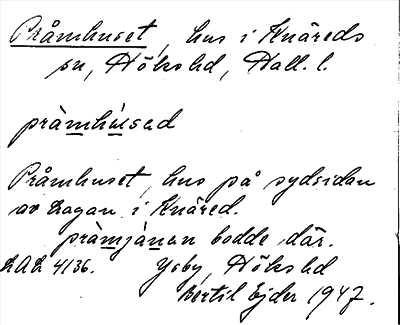 Pråmhuset, hus i Knäreds
sn, Hökshd, Hall. l.
pràmhúsad
Pråmhuset, hus på sydsidan
av Lagan i Knäred.
pràmjánan bodde där.
LAL 4136. Ysby, Hökshd
Bertil Ejder 1947.